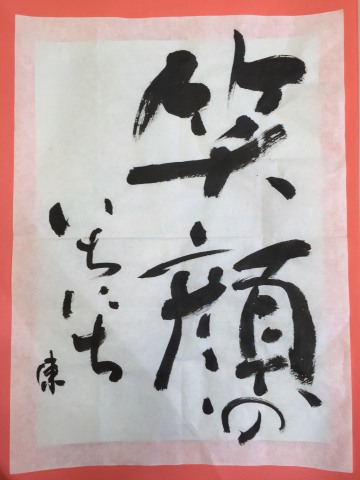 笑顔の
いちにち